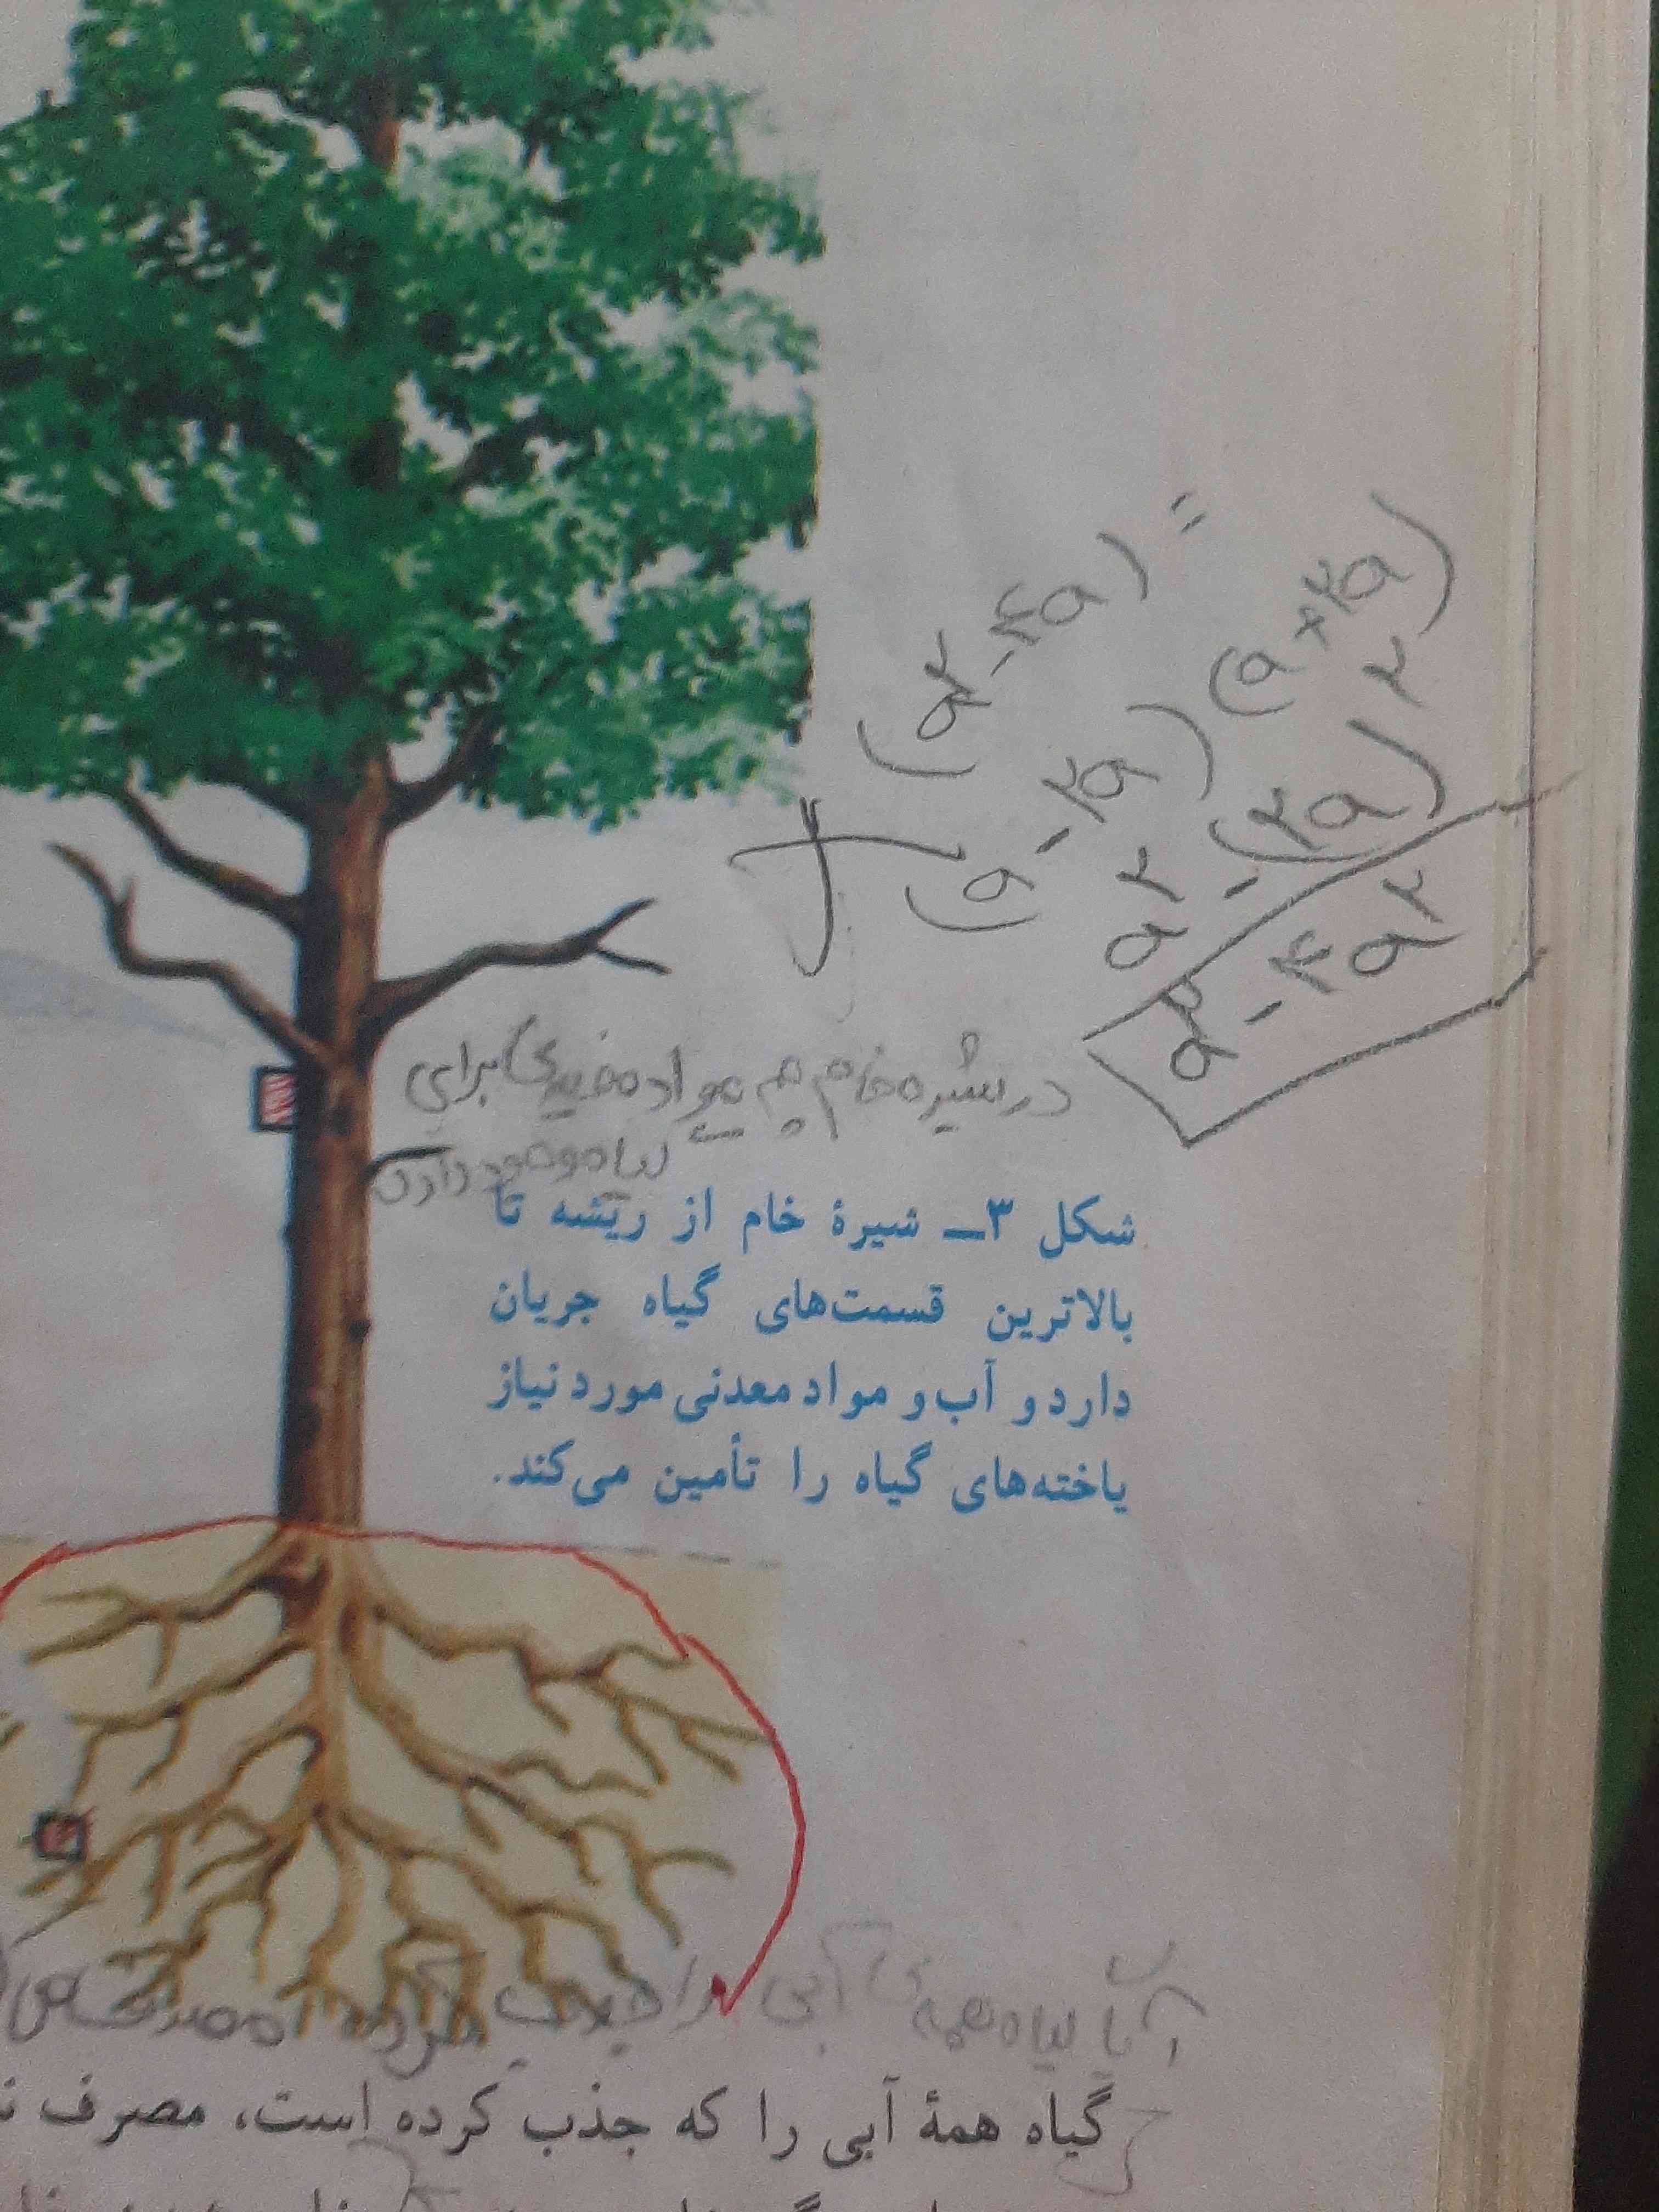 (a² - ۴a) =
(a - ۲a)(a + ۲a)
a² - (۲a)²
a² - ۴a²
در شیره خام چه مواد مفیدی برای
گیاه وجود دارد
شکل ۳ــ شیرهٔ خام از ریشه تا
بالاترین قسمت‌های گیاه جریان
دارد و آب و مواد معدنی مورد نیاز
یاخته‌های گیاه را تأمین می‌کند.
آیا گیاه همه ی آبی را جذب کرده
گیاه همهٔ آبی را که جذب کرده است، مصرف